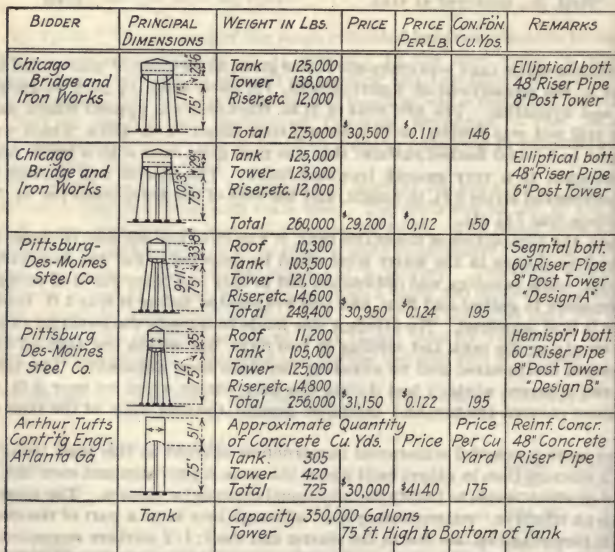 BIDDER PRINCIPAL DIMENSIONS WEIGHT IN LBS. PRICE PRICE PER LB. CON. FO'N. CU. YDS. REMARKS
Chicago Bridge and Iron Works
75'
Tank 125,000
Tower 138,000
Riser, etc. 12,000
Total 275,000 $30,500 $0.111 146
Elliptical bott.
48" Riser Pipe
8" Post Tower
Chicago Bridge and Iron Works
75'
Tank 125,000
Tower 123,000
Riser, etc. 12,000
Total 260,000 $29,200 $0,112 150
Elliptical bott.
48" Riser Pipe
6" Post Tower
Pittsburg-Des-Moines Steel Co.
33'-8"
9'-11"
75'
Roof 10,300
Tank 103,500
Tower 121,000
Riser, etc. 14,600
Total 249,400 $30,950 $0.124 195
Segm'tal bott.
60" Riser Pipe
8" Post Tower
"Design A"
Pittsburg Des-Moines Steel Co.
35'
12'
75'
Roof 11,200
Tank 105,000
Tower 125,000
Riser, etc. 14,800
Total 256,000 $31,150 $0.122 195
Hemisp'r'l bott.
60" Riser Pipe
8" Post Tower
"Design B"
Arthur Tufts
Contr'tg Engr.
Atlanta Ga
51'
75'
Approximate Quantity of Concrete Cu. Yds. Price Price Per Cu Yard
Tank. 305
Tower 420
Total 725 $30,000 $4140 175
Reinf. Concr.
48" Concrete
Riser Pipe
Tank Capacity 350,000 Gallons
Tower 75 ft. High to Bottom of Tank